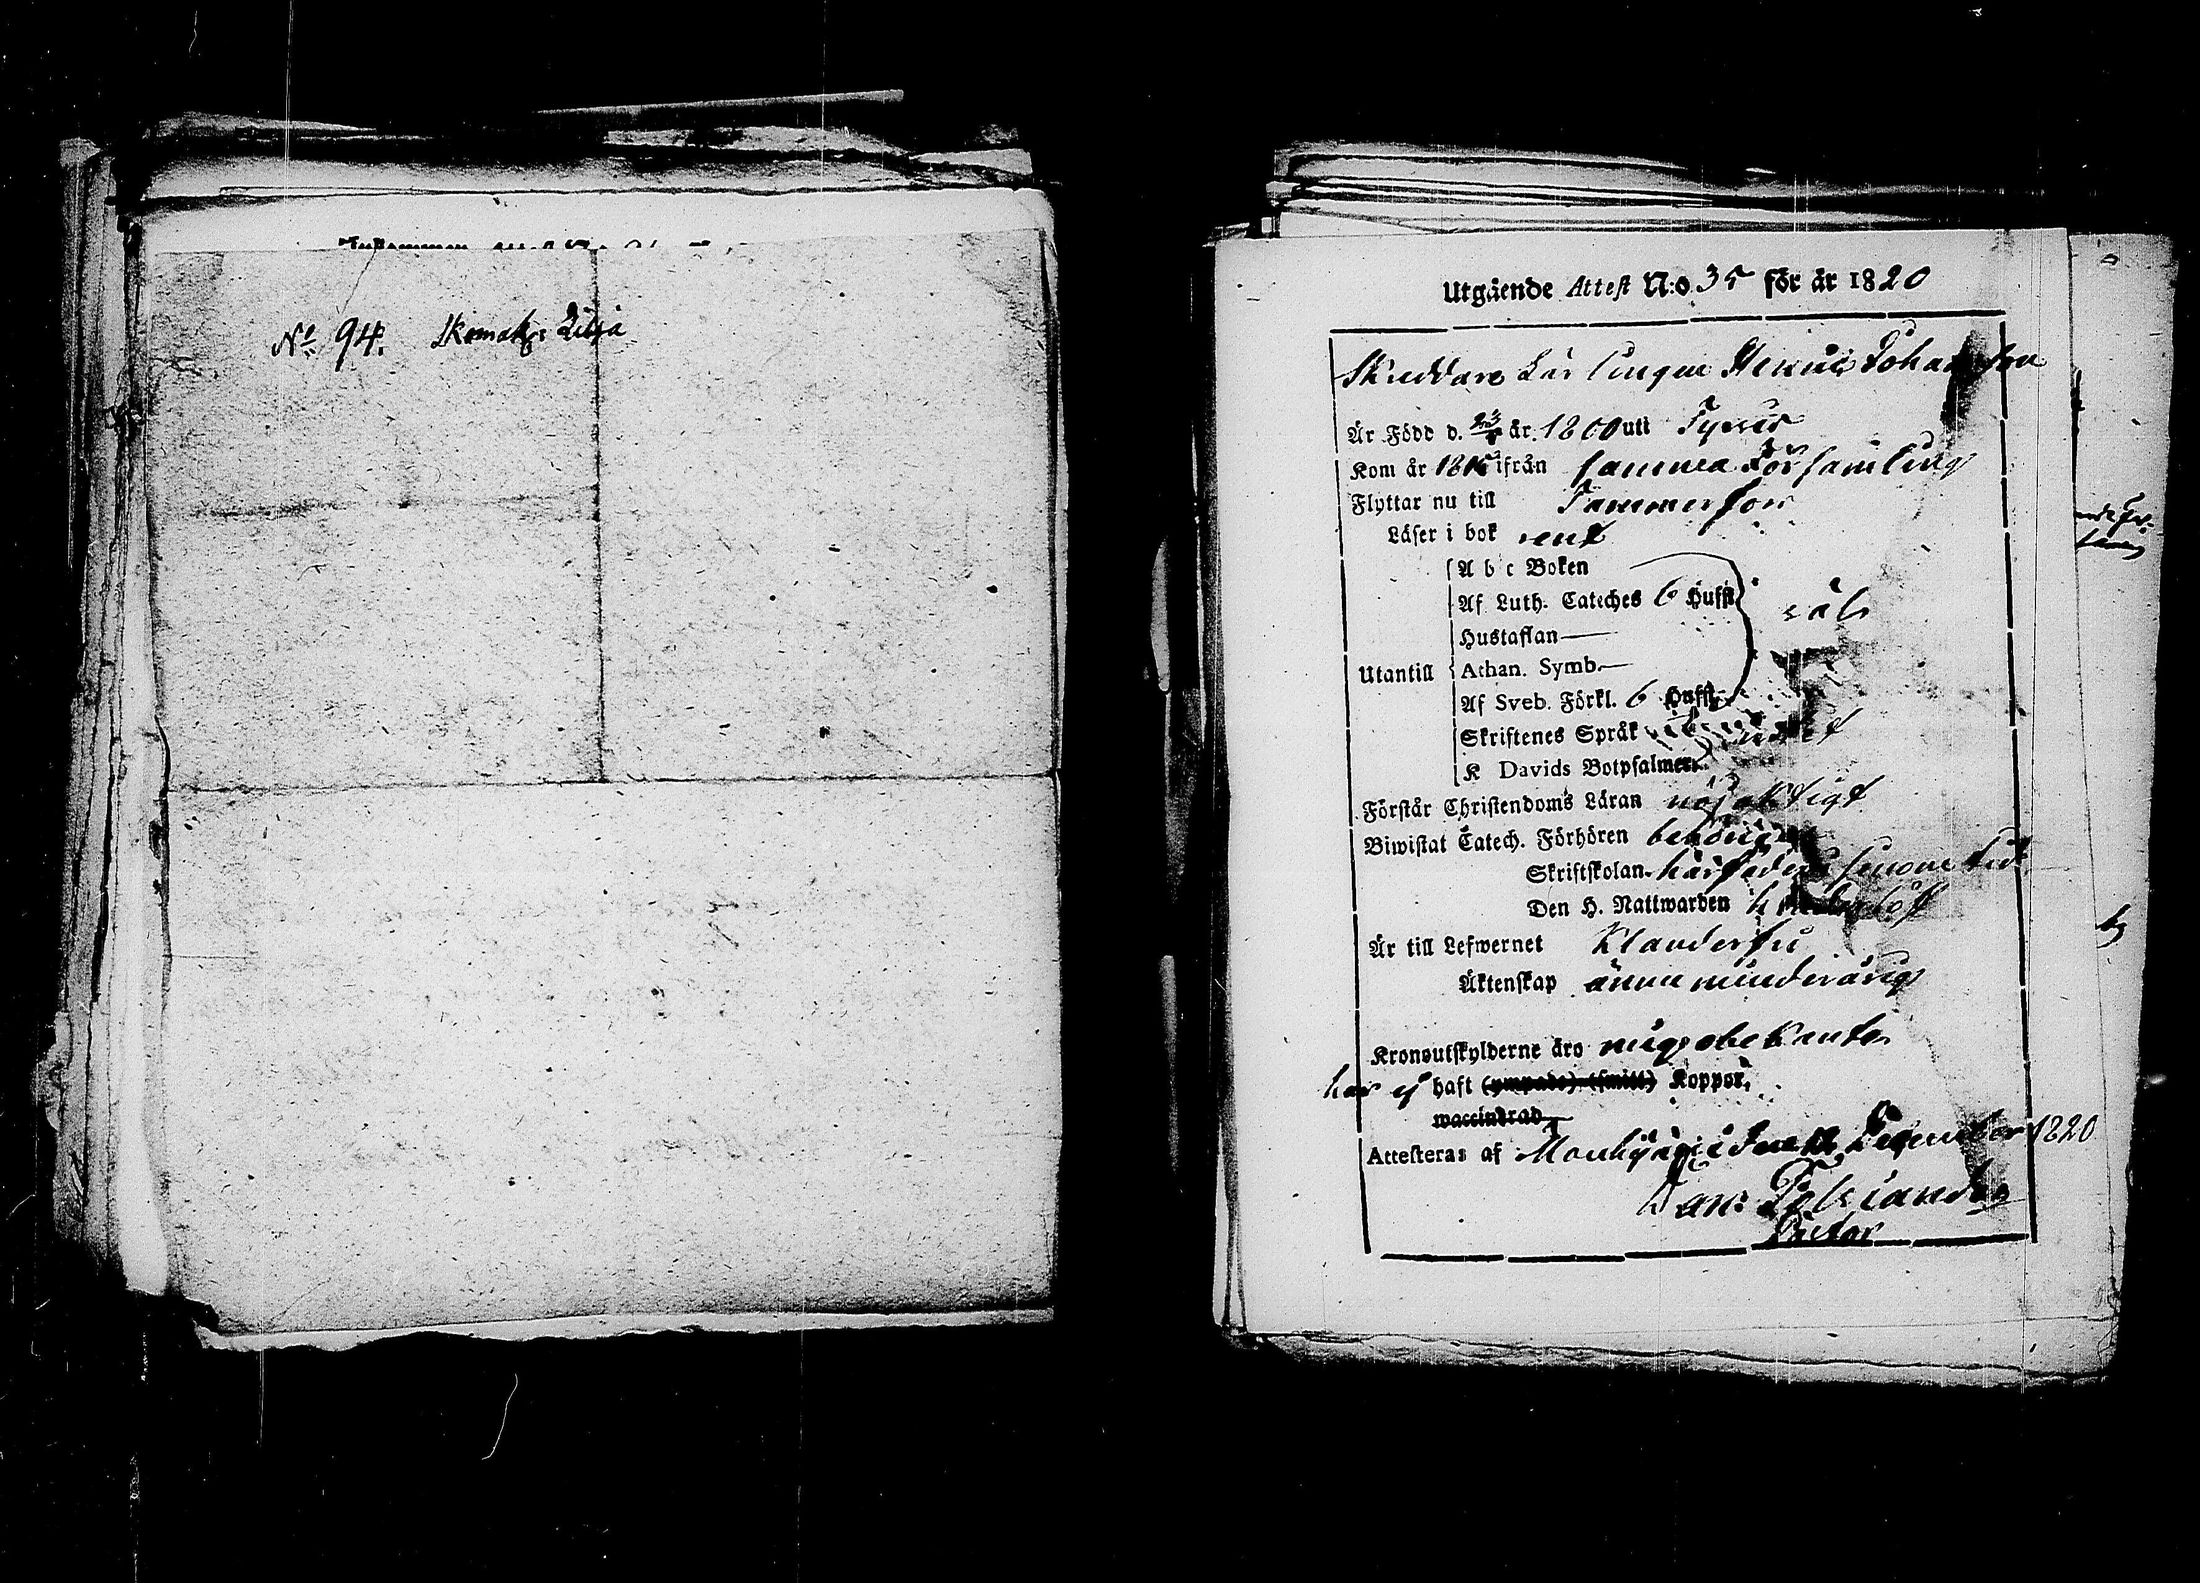 No 94. Skomak: Lilja
Utgäende Attest N:o 35 för år 1820
Skreddare Lärlingen Henric Johansson
Är Född d. 23 år. 1800 uti
Kom år 1816 ifrån samma Församling
Flyttar nu till Tammerfors
Läser i bok rent
A b c Boken
Af Luth. Cateches 6 Hufst
Hustaflan
Utantill Athan. Symb.
Af Sveb. Förkl. 6 Hufst
Skriftenes Språk
K Davids Botpsalmer
Förstår Christendoms Läran nöjaktigt
Biwistat Catech. Förhören behörigt
Skriftskolan härstädes
Den H. Nattwarden
Är till Lefwernet klanderfri
Äktenskap ännu minderårig
Kronoutskylderne äro mig obekanta
har ej haft (ympade) (smitt) Koppor,
waccinerad
Attesteras af Mouhijärvi den 12 December 1820
Pastor